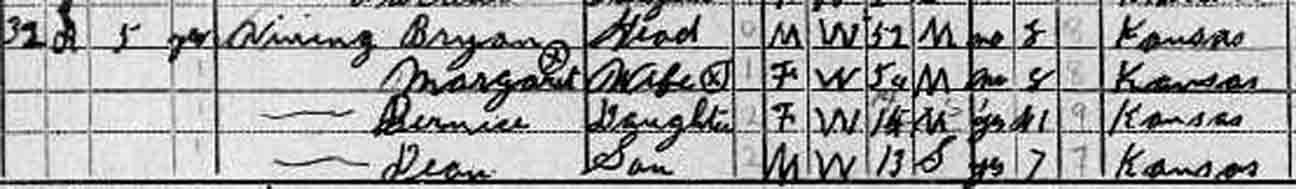 32 R 5 yes Vining Bryan Head 0 M W 52 M no 8 8 Kansas
Margaret Wife X 1 F W 50 M no 8 8 Kansas
— Bernice Daughter 2 F W M yes H1 9 Kansas
— Dean Son 2 M W 13 S yes 7 7 Kansas